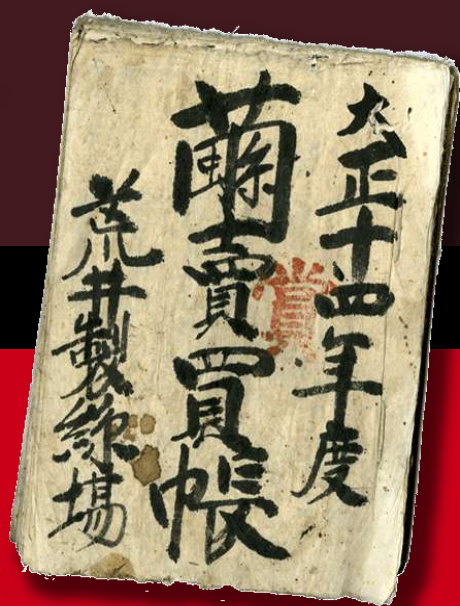 大正十四年度
賞
繭賣買帳
荒井製絲場